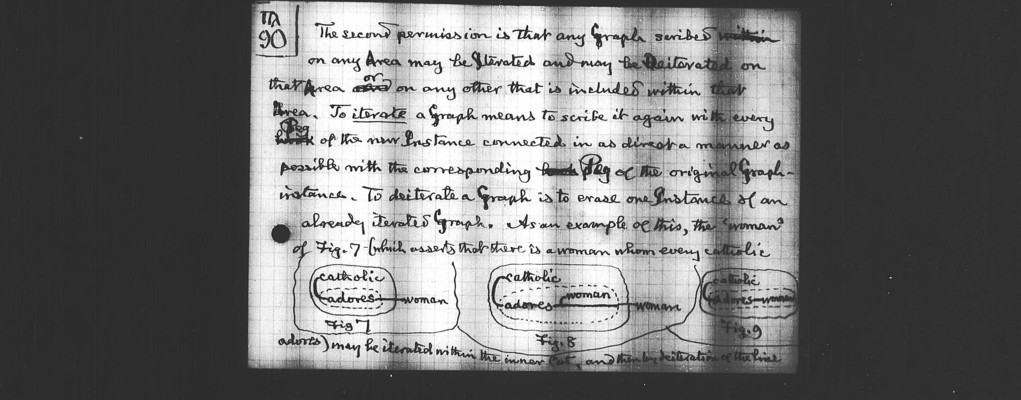 Π
90
The second permission is that any Graph scribed within
on any Area may be Iterated and may be Deiterated on
that Area or on any other that is included within that
Area. To iterate a Graph means to scribe it again with every
Peg of the new Instance connected in as direct a manner as
possible with the corresponding Peg of the original Graph-
instance. To deiterate a Graph is to erase one Instance of an
already iterated Graph. As an example of this, the "woman"
of Fig. 7 (which asserts that there is a woman whom every catholic
catholic
adores woman
Fig 7
catholic
adores woman woman
Fig. 8
catholic
adores woman
Fig. 9
adores) may be iterated within the inner Cut, and then by deiteration of the line